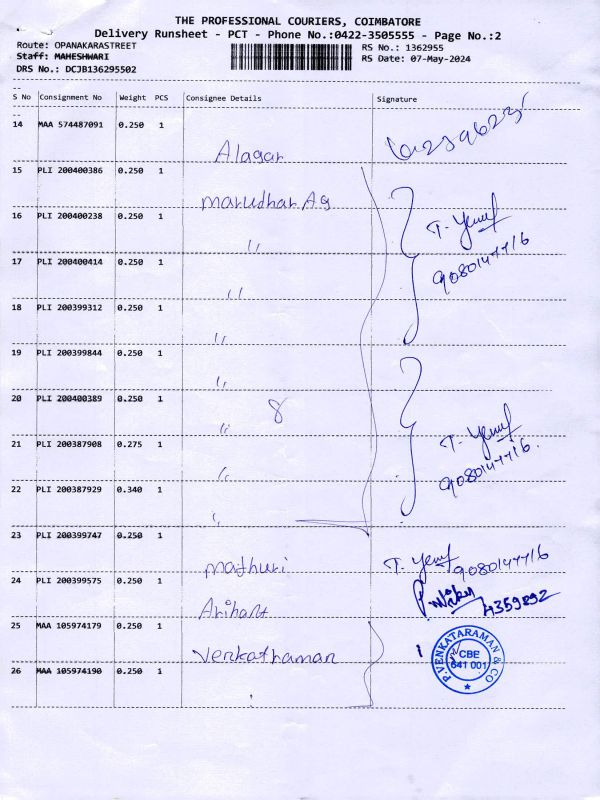 THE PROFESSIONAL COURIERS, COIMBATORE
Delivery Runsheet - PCT - Phone No.:0422-3505555 - Page No.:2
Route: OPANAKARASTREET
RS No.: 1362955
Staff: MAHESHWARI
RS Date: 07-May-2024
DRS No.: DCJB136295502
S No Consignment No Weight PCS Consignee Details Signature
14 MAA 574487091 0.250 1
Alagar
15 PLI 200400386 0.250 1
Marudhar Ag
16 PLI 200400238 0.250 1
"
T.
9080147716
17 PLI 200400414 0.250 1
"
18 PLI 200399312 0.250 1
"
19 PLI 200399844 0.250 1
"
20 PLI 200400389 0.250 1
8
"
21 PLI 200387908 0.275 1
T.
9080147716
"
22 PLI 200387929 0.340 1
"
23 PLI 200399747 0.250 1
Mathuri
T.
9080147716
24 PLI 200399575 0.250 1
Arihant
25 MAA 105974179 0.250 1
Venkathaman
P. VENKATARAMAN & CO
CBE
641 001
26 MAA 105974190 0.250 1